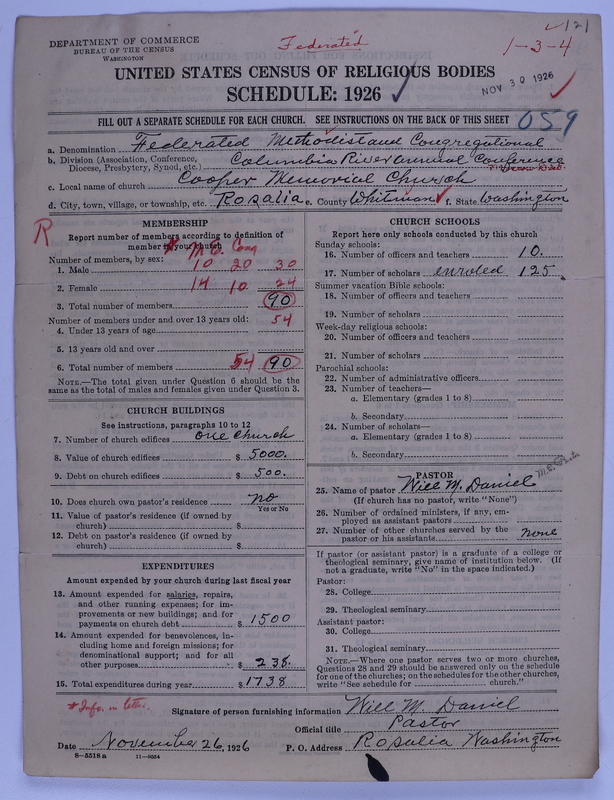 121
DEPARTMENT OF COMMERCE
BUREAU OF THE CENSUS
WASHINGTON
Federated
1-3-4
UNITED STATES CENSUS OF RELIGIOUS BODIES
SCHEDULE: 1926
NOV 30 1926
FILL OUT A SEPARATE SCHEDULE FOR EACH CHURCH. SEE INSTRUCTIONS ON THE BACK OF THIS SHEET
059
a. Denomination Federated Methodist and Congregational
b. Division (Association, Conference, Diocese, Presbytery, Synod, etc.) Columbia River annual Conference
c. Local name of church Cooper Memorial Church
d. City, town, village, or township, etc. Rosalia e. County Whitman f. State Washington
R
MEMBERSHIP
Report number of members according to definition of
member in your church
* M.E. Cong
Number of members, by sex:
1. Male 10 20 30
2. Female 14 10 24
3. Total number of members 90
Number of members under and over 13 years old: 54
4. Under 13 years of age
5. 13 years old and over
6. Total number of members 54 90
NOTE.—The total given under Question 6 should be the
same as the total of males and females given under Question 3.
CHURCH BUILDINGS
See instructions, paragraphs 10 to 12
7. Number of church edifices one church
8. Value of church edifices $ 5000.
9. Debt on church edifices $ 500.
10. Does church own pastor's residence no
Yes or No
11. Value of pastor's residence (if owned by
church) $
12. Debt on pastor's residence (if owned by
church) $
EXPENDITURES
Amount expended by your church during last fiscal year
13. Amount expended for salaries, repairs,
and other running expenses; for im-
provements or new buildings; and for
payments on church debt $ 1500
14. Amount expended for benevolences, in-
cluding home and foreign missions; for
denominational support; and for all
other purposes $ 238.
15. Total expenditures during year $ 1738
CHURCH SCHOOLS
Report here only schools conducted by this church
Sunday schools:
16. Number of officers and teachers 10.
17. Number of scholars enroled 125
Summer vacation Bible schools:
18. Number of officers and teachers
19. Number of scholars
Week-day religious schools:
20. Number of officers and teachers
21. Number of scholars
Parochial schools:
22. Number of administrative officers
23. Number of teachers—
a. Elementary (grades 1 to 8)
b. Secondary
24. Number of scholars—
a. Elementary (grades 1 to 8)
b. Secondary
PASTOR
25. Name of pastor Will M. Daniel
(If church has no pastor, write "None")
26. Number of ordained ministers, if any, em-
ployed as assistant pastors
27. Number of other churches served by the
pastor or his assistants none
If pastor (or assistant pastor) is a graduate of a college or
theological seminary, give name of institution below. (If
not a graduate, write "No" in the space indicated.)
Pastor:
28. College
29. Theological seminary
Assistant pastor:
30. College
31. Theological seminary
NOTE.—Where one pastor serves two or more churches,
Questions 28 and 29 should be answered only on the schedule
for one of the churches; on the schedules for the other churches,
write "See schedule for church."
* Info. in letter.
Signature of person furnishing information Will M. Daniel
Official title Pastor
Date November 26, 1926 P. O. Address Rosalia Washington
8—5518 a 11—9554